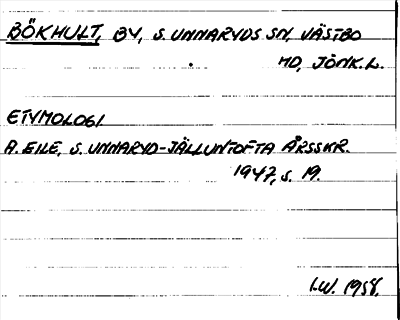 BÖKHULT, BY, S. UNNARYDS SN, VÄSTBO
HD, JÖNK. L.
ETYMOLOGI
A. EILE, S. UNNARYD-JÄLLUNTOFTA ÅRSSKR.
1947, s. 19.
I.W. 1958.